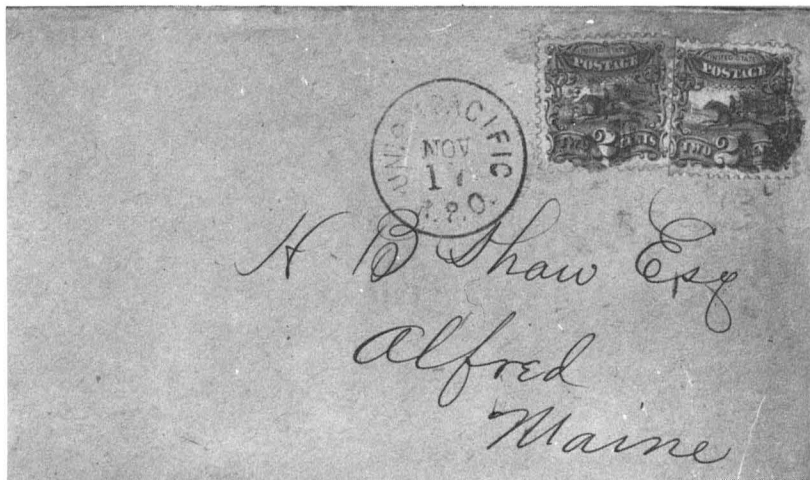 UNITED STATES POSTAGE
UNITED STATES POSTAGE
TWO 2 CENTS
TWO 2
PACIFIC
NOV
R.P.O.
H B Shaw Esq
Alfred
Maine